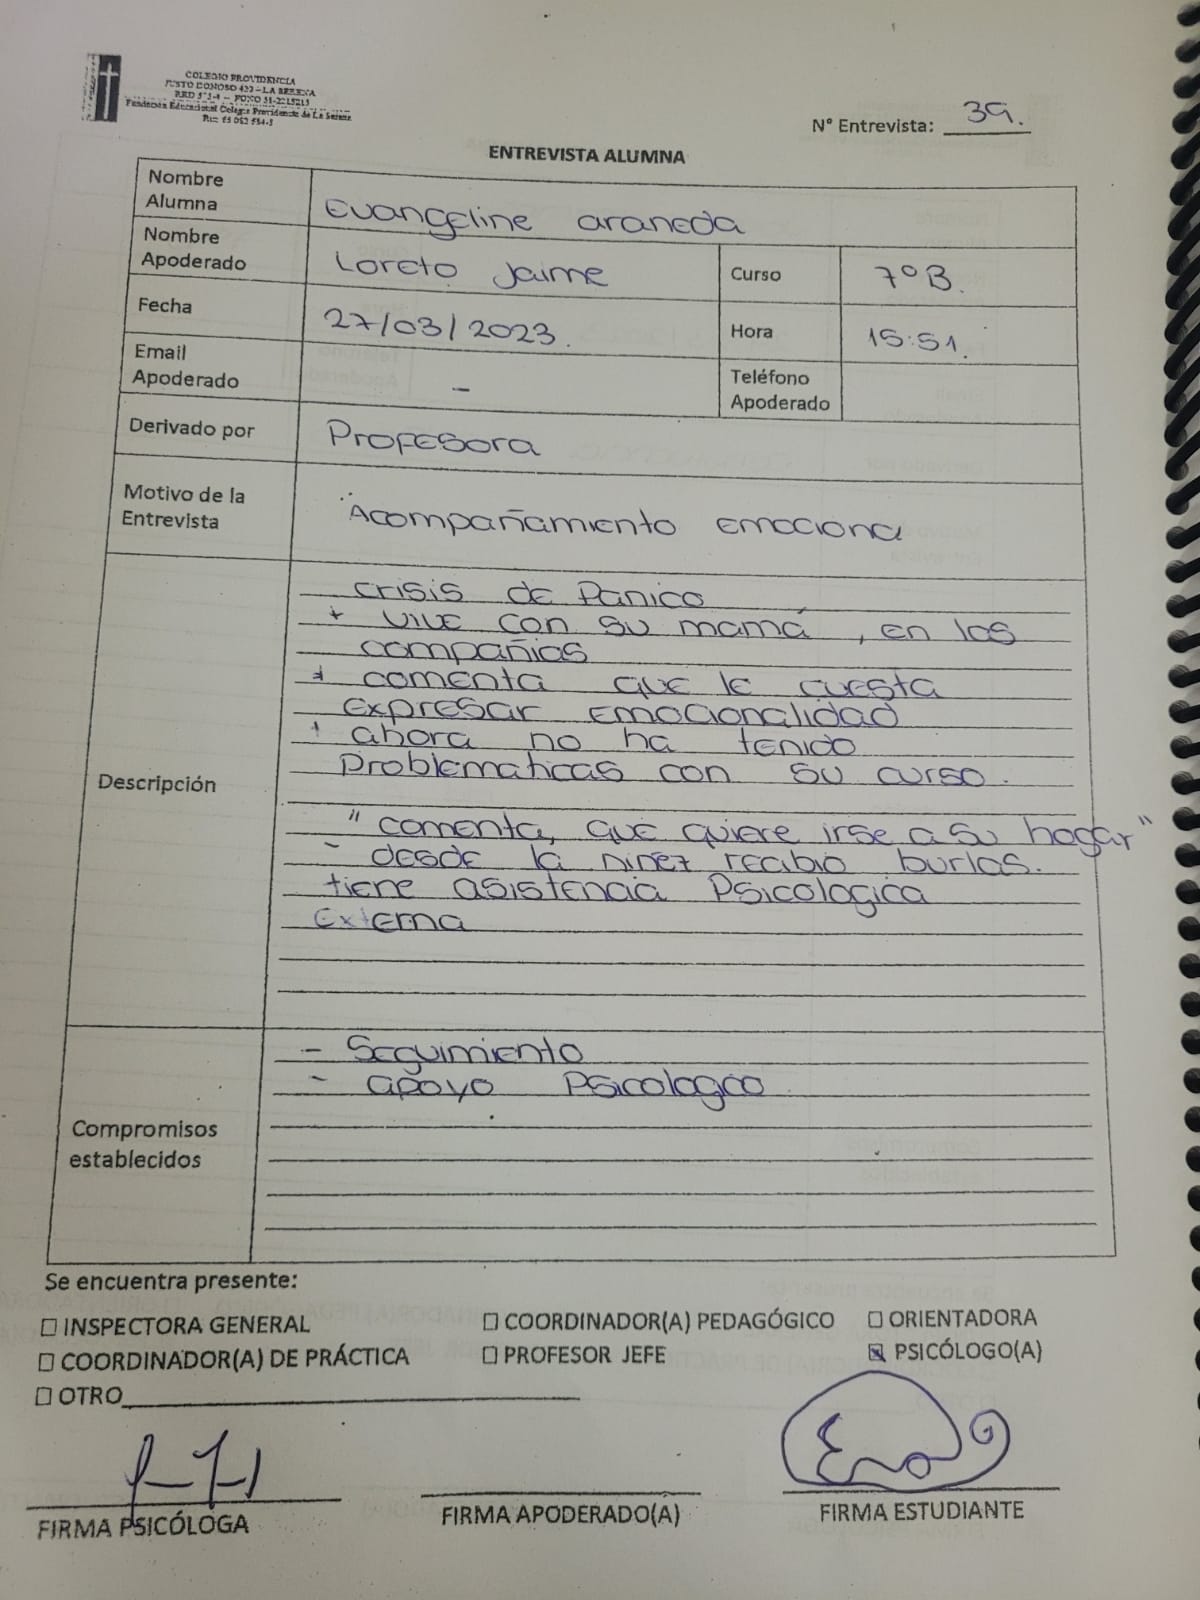 COLEGIO PROVIDENCIA
JUSTO DONOSO 420 – LA SERENA
Fundación Educacional Colegio Providencia de La Serena
N° Entrevista: 39.
ENTREVISTA ALUMNA
Nombre Alumna
Evangeline araneda
Nombre Apoderado
Loreto Jaime
Curso
7°B.
Fecha
27/03/2023.
Hora
15:51.
Email Apoderado
-
Teléfono Apoderado
Derivado por
Profesora
Motivo de la Entrevista
Acompañamiento emociona
Descripción
crisis de Panico
+ vive con su mamá, en las
compañias
+ comenta que le cuesta
expresar emocionalidad
+ ahora no ha tenido
Problematicas con su curso.
" comenta, que quiere irse a su hogar"
- desde la niñez recibio burlas.
tiene asistencia Psicologica
Externa
Compromisos establecidos
- Seguimiento
- apoyo Psicologico
Se encuentra presente:
☐ INSPECTORA GENERAL ☐ COORDINADOR(A) PEDAGÓGICO ☐ ORIENTADORA
☐ COORDINADOR(A) DE PRÁCTICA ☐ PROFESOR JEFE ☒ PSICÓLOGO(A)
☐ OTRO
FIRMA PSICÓLOGA FIRMA APODERADO(A) FIRMA ESTUDIANTE